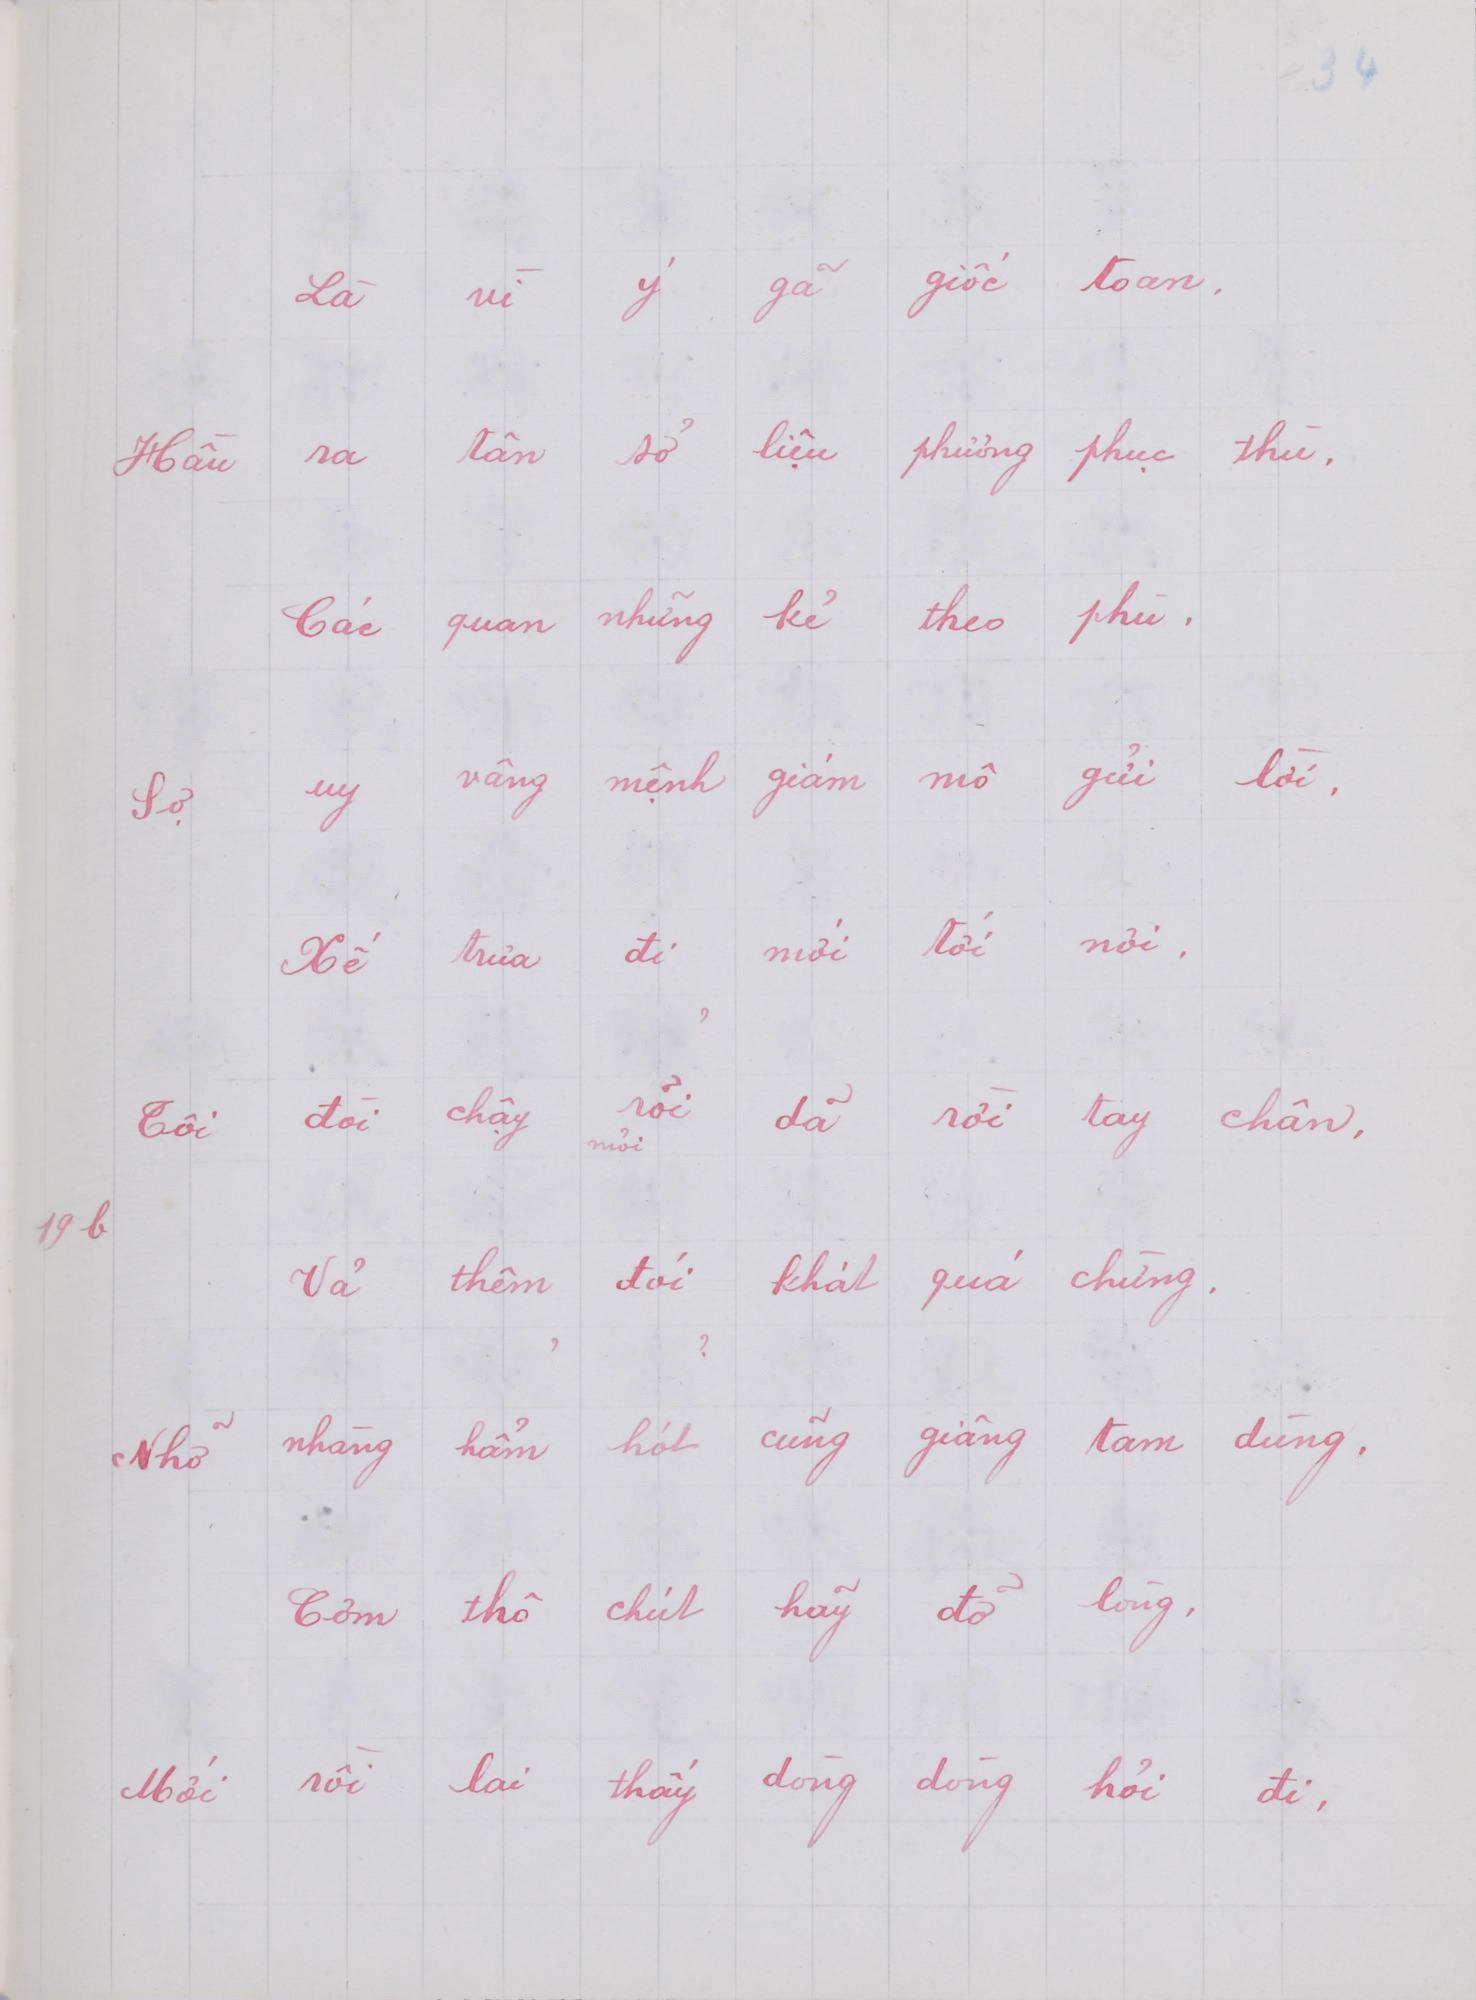 34
Là vì ý gã giốc toan.
Hầu ra tân sở liệu phương phục thù.
Các quan những kẻ theo phù.
Sợ uy vâng mệnh giám mô gửi lời.
Xế trưa đi mới tới nơi.
?
Tôi đòi chậy rỏi dã rời tay chân,
mỏi
19 b
Vả thêm đói khát quá chừng.
? ?
Nhỡ nhàng hẩm hót cũng giâng tam dùng.
Cơm thô chút hãy đỡ lòng.
Mới rồi lai thấy dòng dòng hỏi đi,